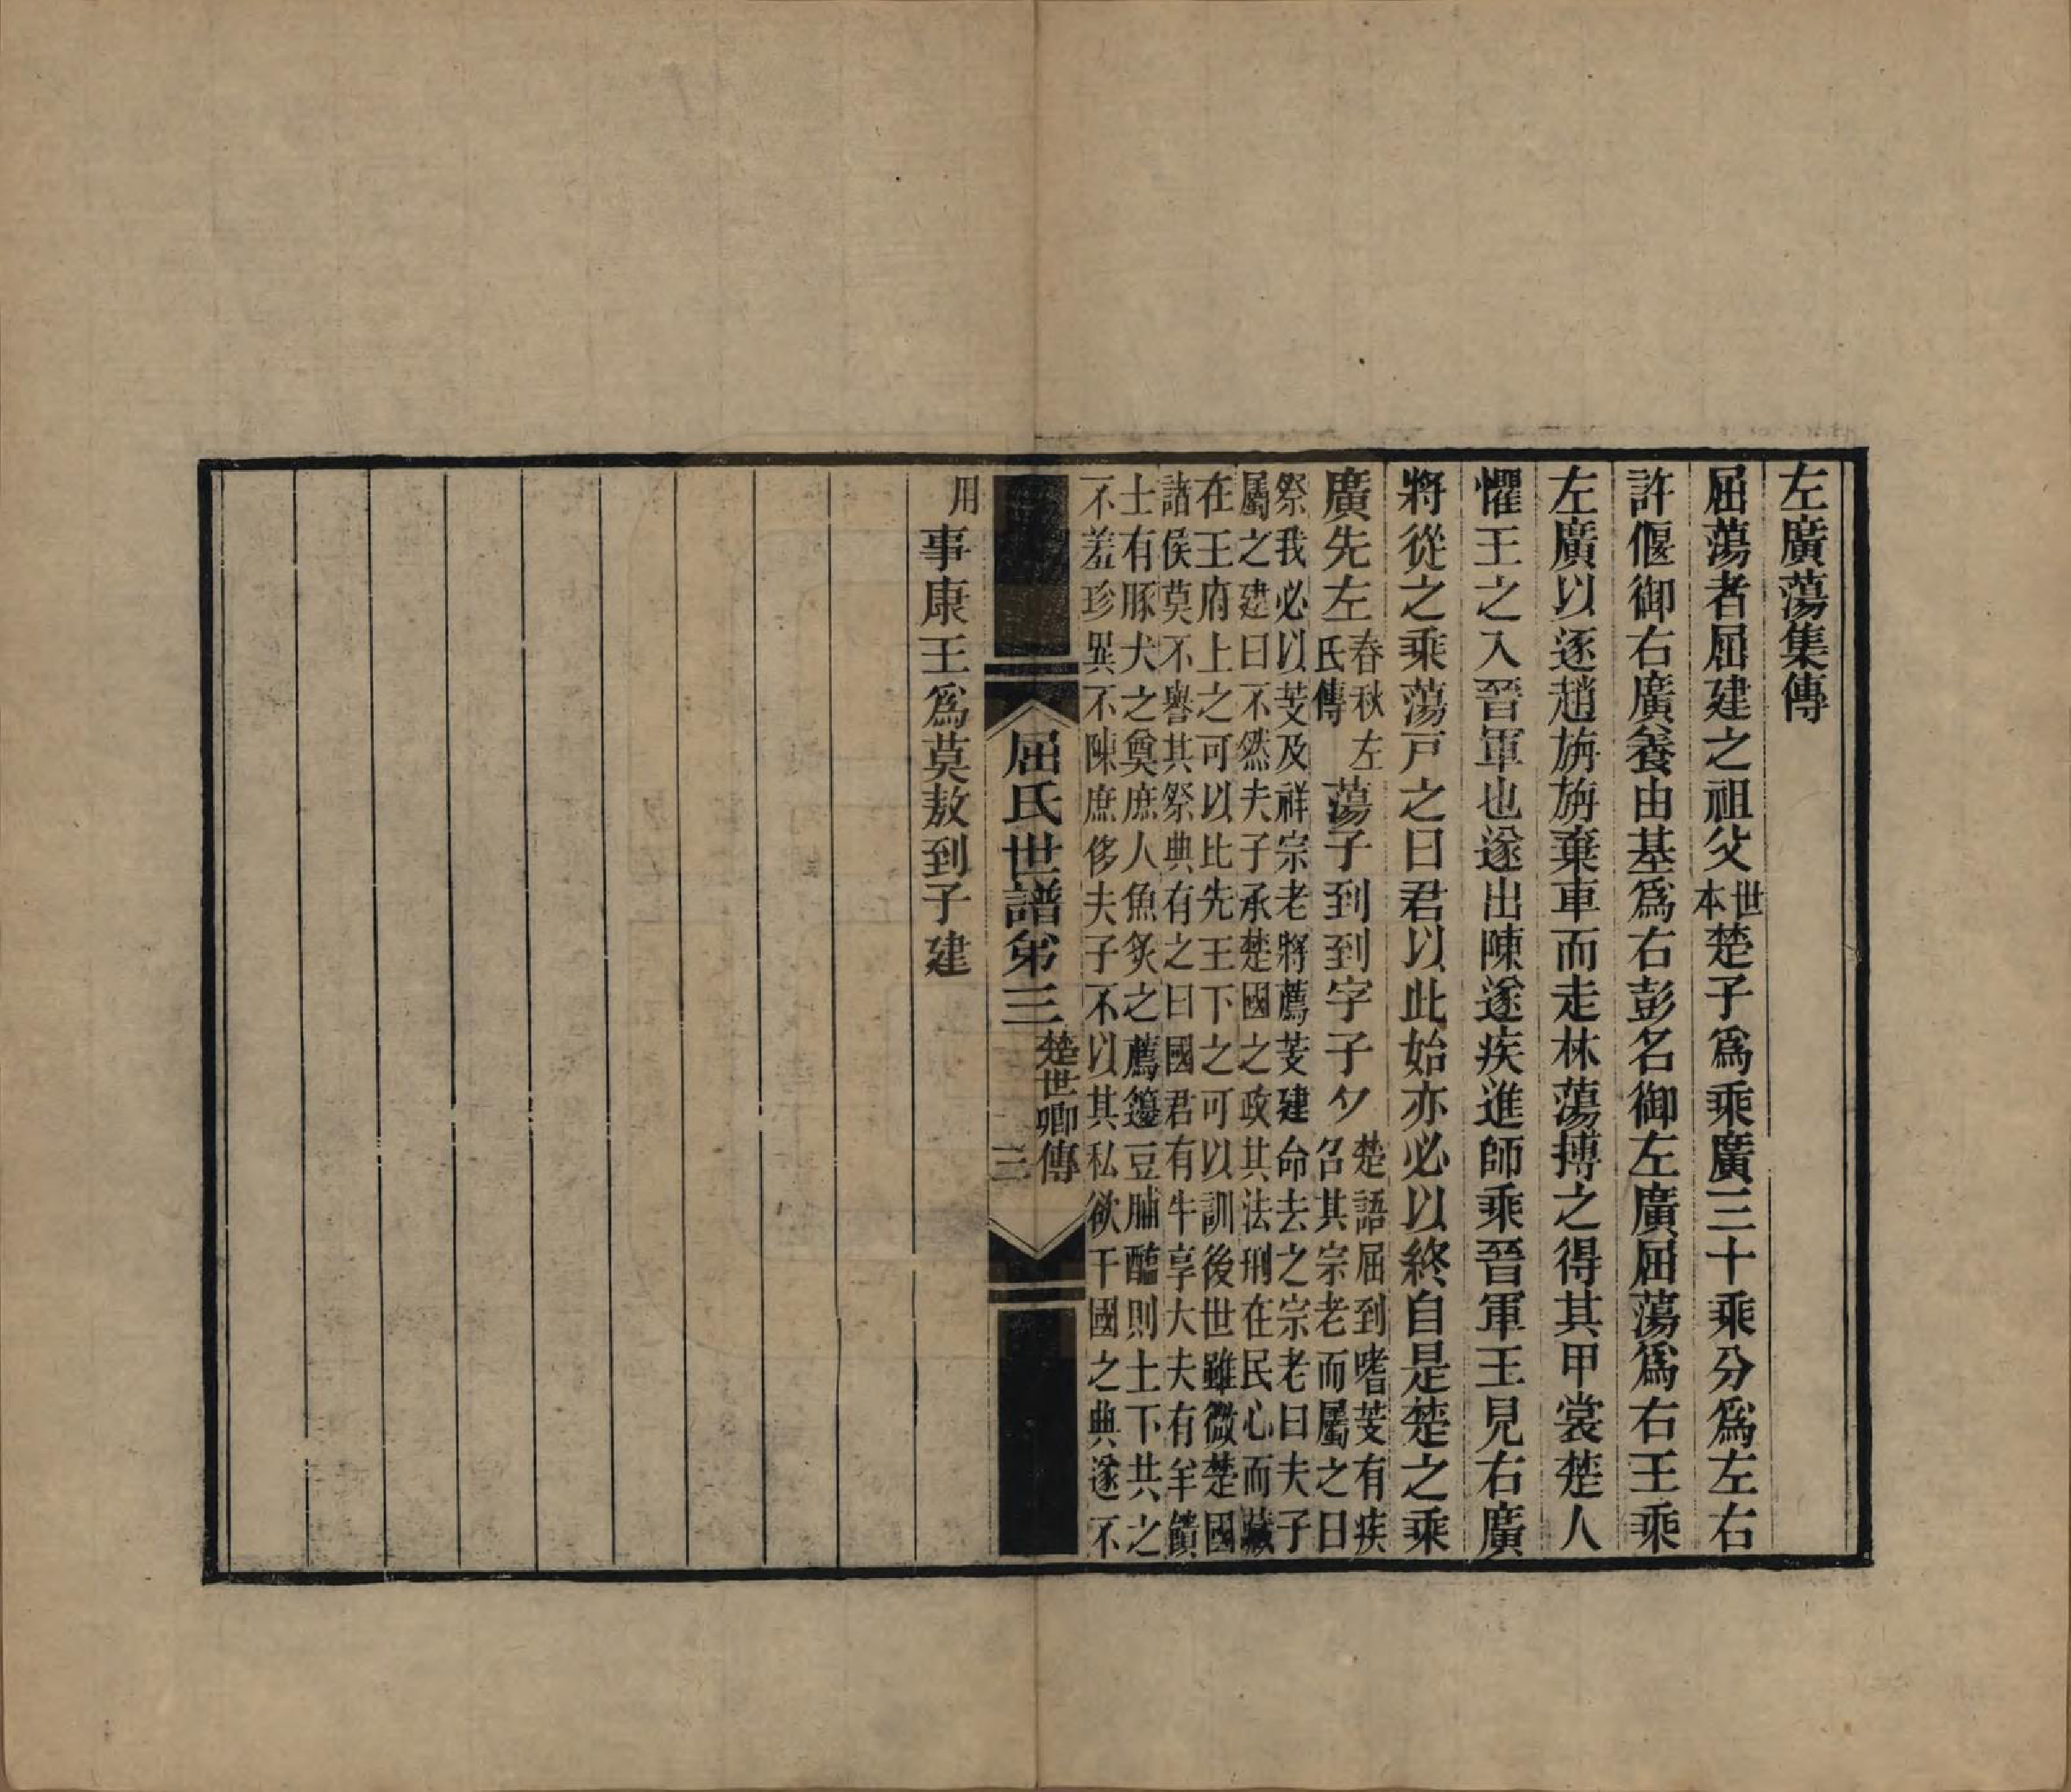 左廣蕩集傳
屈蕩者屈建之祖父世本楚子爲乘廣三十乘分爲左右
許偃御右廣養由基爲右彭名御左廣屈蕩爲右王乘
左廣以逐趙旃旃棄車而走林蕩搏之得其甲裳楚人
懼王之入晉軍也遂出陳遂疾進師乘晉軍王見右廣
將從之乘蕩戸之曰君以此始亦必以終自是楚之乘
廣先左春秋左氏傳蕩子到到字子夕楚語屈到嗜芰有疾召其宗老而屬之曰
祭我必以芰及祥宗老將薦芰建命去之宗老曰夫子
屬之建曰不然夫子承楚國之政其法刑在民心而藏
在王府上之可以比先王下之可以訓後世雖微楚國
諸侯莫不譽其祭典有之曰國君有牛享大夫有羊饋
士有豚犬之奠庶人魚炙之薦籩豆脯醢則上下共之
不羞珍異不陳庶侈夫子不以其私欲干國之典遂不
屈氏世譜弟三 楚世卿傳 三
用事康王爲莫敖到子建